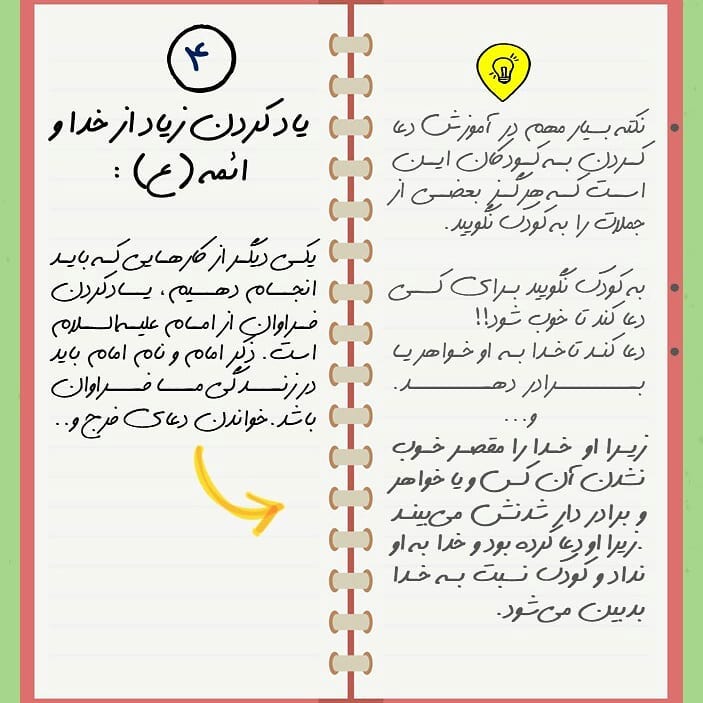 نکته بسیار مهم در آموزش دعا
کردن به کودکان این
است که هرگز بعضی از
جملات را به کودک نگویید.
به کودک نگویید برای کسی
دعا کند تا خوب شود!!
دعا کند تا خدا به او خواهر یا
برادر دهد.
و...
زیرا او خدا را مقصر خوب
نشدن آن کس و یا خواهر
و برادر دار شدنش می‌بیند
.زیرا او دعا کرده بود و خدا به او
نداد و کودک نسبت به خدا
بدبین می‌شود.
۴
یاد کردن زیاد از خدا و
ائمه (ع) :
یکی دیگر از کارهایی که باید
انجام دهیم، یادکردن
فراوان از امام علیه‌السلام
است. ذکر امام و نام امام باید
در زندگی ما فراوان
باشد. خواندن دعای فرج و..